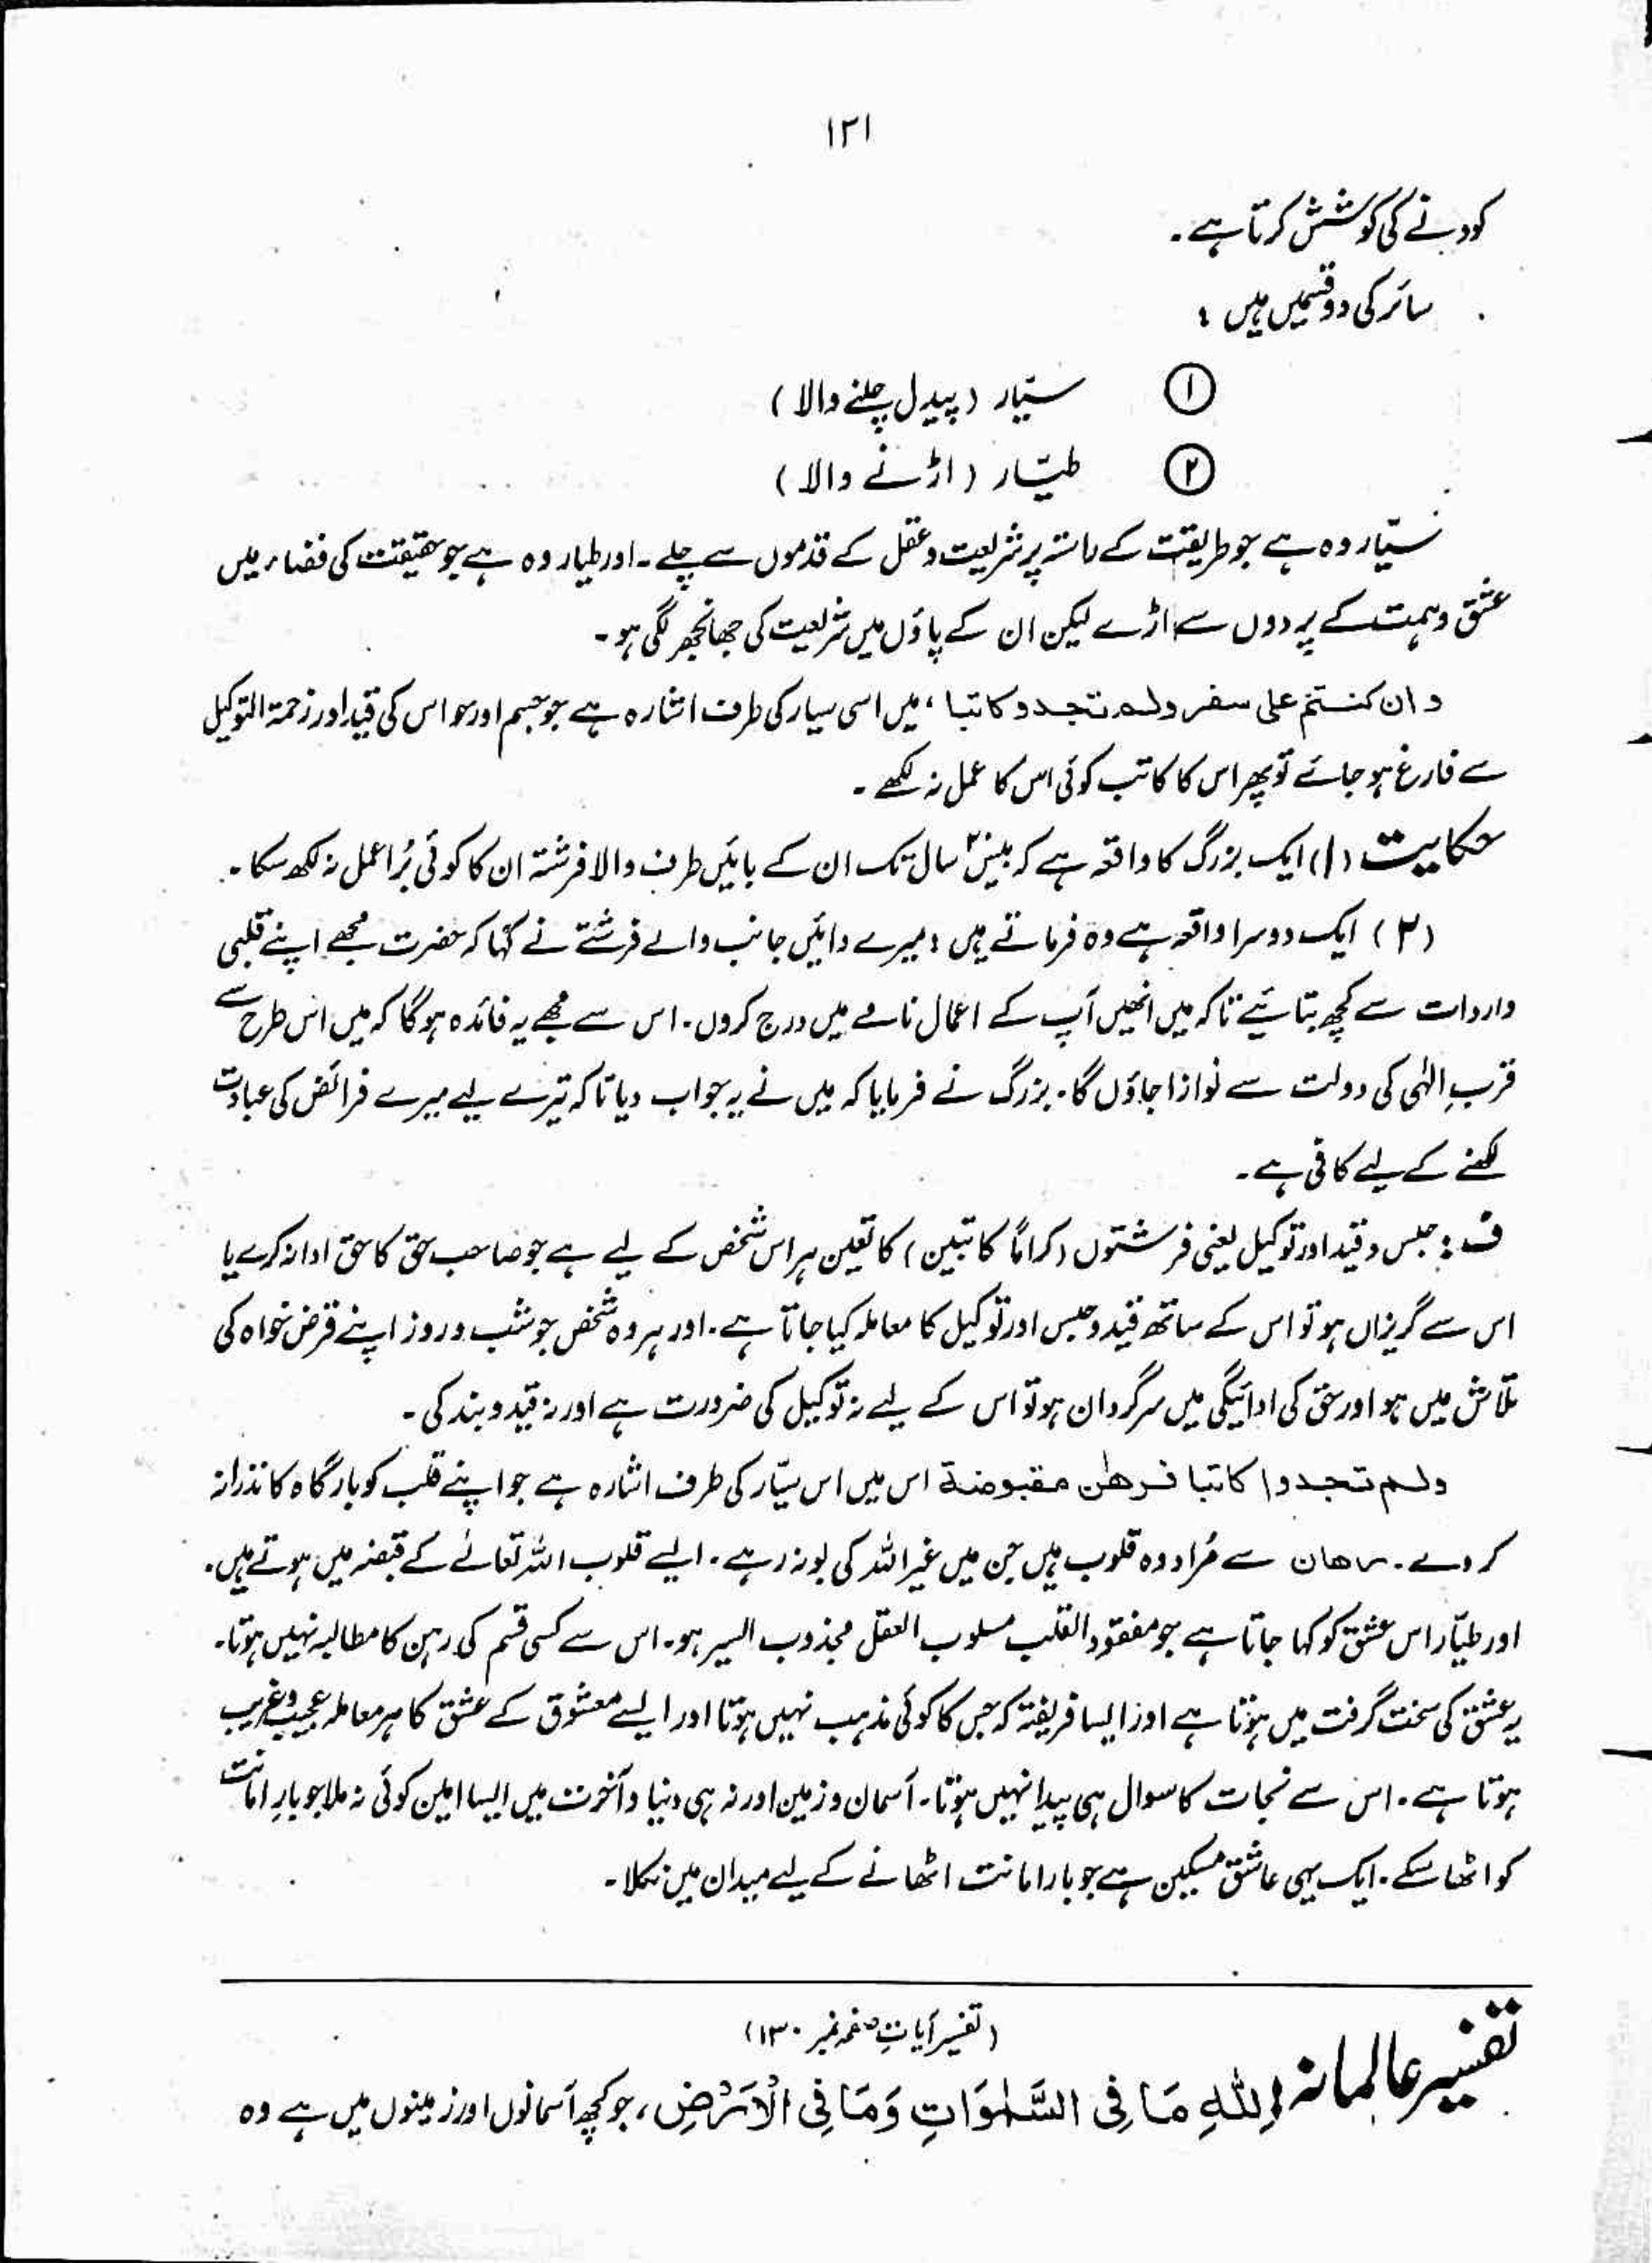 ۱۲۱
کودنے کی کوشش کرتا ہے۔
سائر کی دو قسمیں ہیں :
① سیّار (پیدل چلنے والا)
② طیّار (اڑنے والا)
سیّار وہ ہے جو طریقت کے راستہ پر شریعت و عقل کے قدموں سے چلے۔ اور طیار وہ ہے جو حقیقت کی فضاء میں
عشق و ہمت کے پردوں سے اڑے لیکن ان کے پاؤں میں شریعت کی جھانجھر لگی ہو۔
و ان کنتم علی سفر ولم تجدو کاتبا، میں اسی سیار کی طرف اشارہ ہے جو جسم اور حواس کی قید اور زحمۃ التوکیل
سے فارغ ہو جائے تو پھر اس کا کاتب کوئی اس کا عمل نہ لکھے۔
حکایت (۱) ایک بزرگ کا واقعہ ہے کہ بیس۲۰ سال تک ان کے بائیں طرف والا فرشتہ ان کا کوئی بُرا عمل نہ لکھ سکا۔
(۲) ایک دوسرا واقعہ ہے وہ فرماتے ہیں : میرے دائیں جانب والے فرشتے نے کہا کہ حضرت مجھے اپنے قلبی
واردات سے کچھ بتائیے تاکہ میں انھیں آپ کے اعمال نامے میں درج کروں۔ اس سے مجھے یہ فائدہ ہو گا کہ میں اس طرح سے
قربِ الٰہی کی دولت سے نوازا جاؤں گا۔ بزرگ نے فرمایا کہ میں نے یہ جواب دیا تاکہ تیرے لیے میرے فرائض کی عبادت
لکھنے کے لیے کافی ہے۔
ف : حبس و قید اور توکیل یعنی فرشتوں (کراماً کاتبین) کا تعین ہر اس شخص کے لیے ہے جو صاحب حق کا حق ادا نہ کرے یا
اس سے گریزاں ہو تو اس کے ساتھ قید و حبس اور توکیل کا معاملہ کیا جاتا ہے۔ اور ہر وہ شخص جو شب و روز اپنے قرض خواہ کی
تلاش میں ہو اور حق کی ادائیگی میں سرگردان ہو تو اس کے لیے نہ توکیل کی ضرورت ہے اور نہ قید و بند کی۔
ولم تجدوا کاتبا فرھٰن مقبوضة اس میں اس سیّار کی طرف اشارہ ہے جو اپنے قلب کو بارگاہ کا نذرانہ
کر دے۔ رھان سے مُراد وہ قلوب ہیں جن میں غیر اللہ کی بو نہ رہے۔ ایسے قلوب اللہ تعالٰے کے قبضہ میں ہوتے ہیں۔
اور طیّار اس عشق کو کہا جاتا ہے جو مفقود القلب مسلوب العقل مجذوب السیر ہو۔ اس سے کسی قسم کی رہن کا مطالبہ نہیں ہوتا۔
یہ عشق کی سخت گرفت میں ہوتا ہے اور ایسا فریفتہ کہ جس کا کوئی مذہب نہیں ہوتا اور ایسے معشوق کے عشق کا ہر معاملہ عجیب و غریب
ہوتا ہے۔ اس سے نجات کا سوال ہی پیدا نہیں ہوتا۔ آسمان و زمین اور نہ ہی دنیا و آخرت میں ایسا امین کوئی نہ ملا جو بارِ امانت
کو اٹھا سکے۔ ایک یہی عاشق مسکین ہے جو بار امانت اٹھانے کے لیے میدان میں نکلا۔
(تفسیر آیاتِ صفحہ نمبر ۱۳۰)
تفسیر عالمانہ لِلّٰهِ مَا فِی السَّمٰوَاتِ وَمَا فِی الْاَرْضِ، جو کچھ آسمانوں اور زمینوں میں ہے وہ